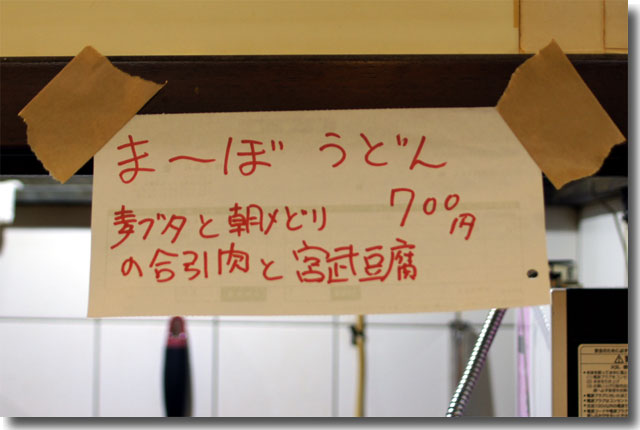 ま〜ぼ うどん
麦ブタと朝〆どり 700円
の合引肉と宮武豆腐